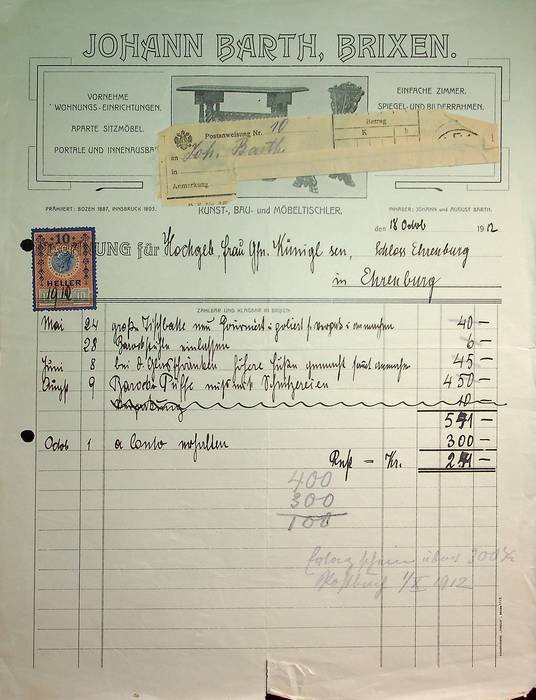 JOHANN BARTH, BRIXEN.
VORNEHME
WOHNUNGS-EINRICHTUNGEN.
APARTE SITZMÖBEL.
PORTALE UND INNENAUSBA
EINFACHE ZIMMER.
SPIEGEL- UND BILDERRAHMEN.
Postanweisung Nr. 10
Betrag
K h
an Joh. Barth.
in
Anmerkung
PRÄMIIERT: BOZEN 1887, INNSBRUCK 1893.
KUNST-, BAU- und MÖBELTISCHLER.
INHABER: JOHANN und AUGUST BARTH.
den 18 Octob 1912
10
HELLER
NUNG für Hochgeb. frau Gfn. Künigl sen. Schloss Ehrenburg
in Ehrenburg
ZAHLBAR UND KLAGBAR IN BRIXEN
Mai 24 große Tischplatte neu fourniert u. poliert 40 —
28 Barockstühle einlassen 6 —
Juni 8 bei d. Glasschränken höhere Füßen gemacht 45 —
Augst 9 Barock Puffe mit Schnitzereien 450 —
Verpackung
541 —
Octob 1 a Conto erhalten 300 —
Rest = Kr. 241 —
400
300
100
über 300 K
1912